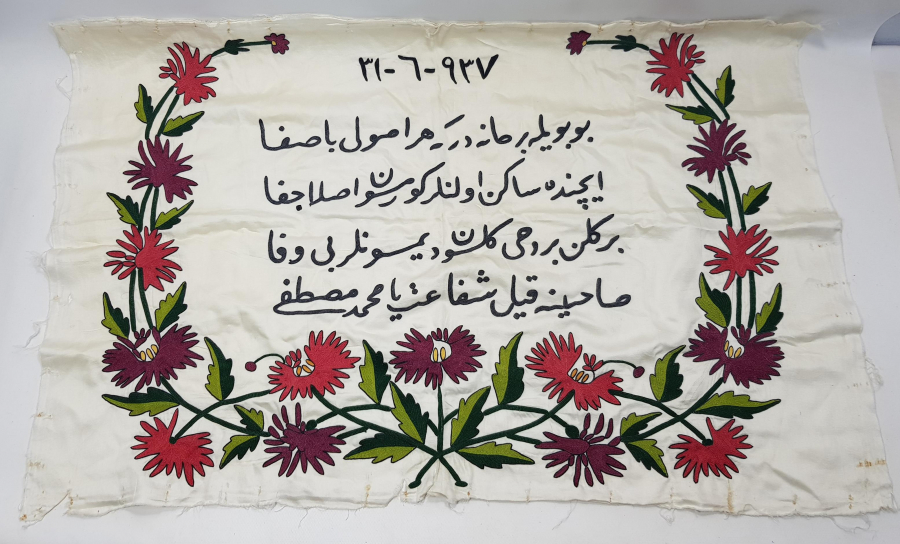 ٣١-٦-٩٣٧
بو بویله بر خانه در که هر اصول با صفا
ایچنده ساکن اولنلر کورمسون اصلا جفا
بر کلن بر دحی کلسون دیمسونلر بی وفا
صاحبینه قیل شفاعت یا محمد مصطفی